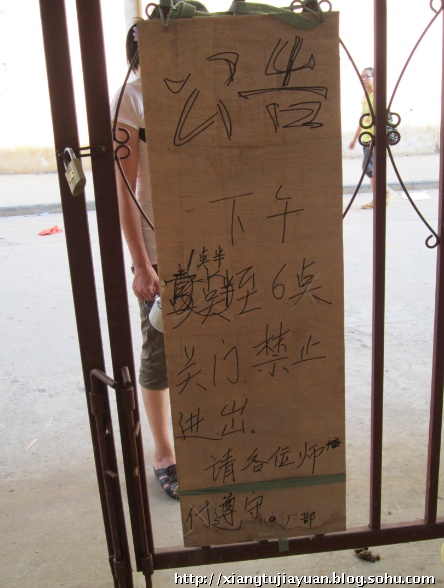 公告
下午
1点半
点半至6点
关门.禁止
进出.
请各位师
付遵守。厂部
http://xiangtujiayuan.blog.sohu.com